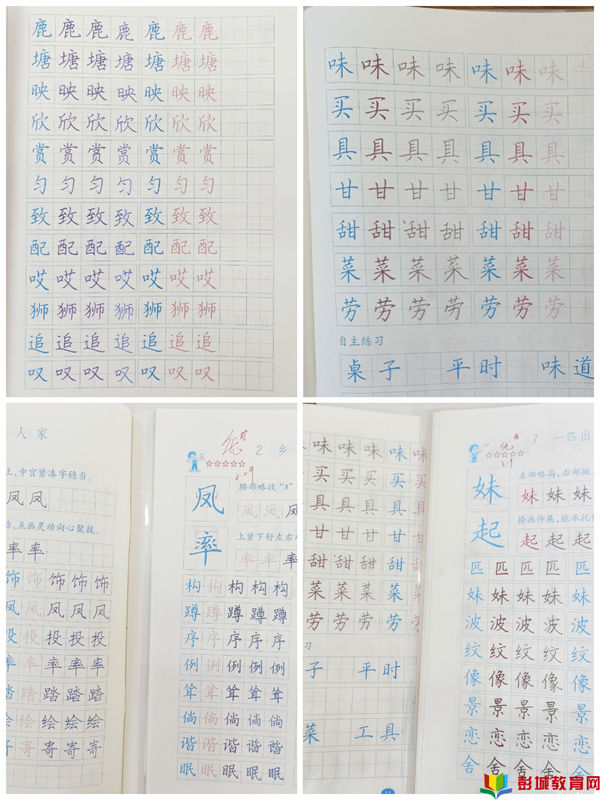 鹿鹿鹿鹿鹿鹿鹿
塘塘塘塘塘塘塘
映映映映映映映
欣欣欣欣欣欣欣
赏赏赏赏赏赏赏
匀匀匀匀匀匀匀
致致致致致致致
配配配配配配配
哎哎哎哎哎哎哎
狮狮狮狮狮狮狮
追追追追追追追
叹叹叹叹叹叹叹
味味味味味味味
买买买买买买买
具具具具具具具
甘甘甘甘甘甘甘
甜甜甜甜甜甜甜
菜菜菜菜菜菜菜
劳劳劳劳劳劳劳
自主练习
桌子 平时 味道
人家
上,中宫紧凑字稳当。
凤凤
点画灵动向心聚拢。
率率
饰饰饰饰饰
凤凤凤凤
投投投投
率率率率
踏踏踏踏
绘绘绘绘
寄寄寄
优
2 乡
2.29
凤
腰部略收“X”
凤凤凤
率
上紧下舒左右
率率率
构构构构构
蹲蹲蹲蹲蹲
序序序序序
例例例例例
耸耸耸耸耸
倘倘倘倘倘
谐谐谐谐谐
眠眠眠眠眠
味味味味味
买买买买买
具具具具具
甘甘甘甘甘
甜甜甜甜甜
菜菜菜菜菜
劳劳劳劳劳
习
子 平时
菜 工具
优
7 一匹出
妹
左部略高,右部
妹妹妹
起
捺画伸展,能承托
起起起
匹匹匹匹匹
妹妹妹妹妹
波波波波波
纹纹纹纹纹
像像像像像
景景景景景
恋恋恋恋恋
舍舍舍舍舍
彭城教育网